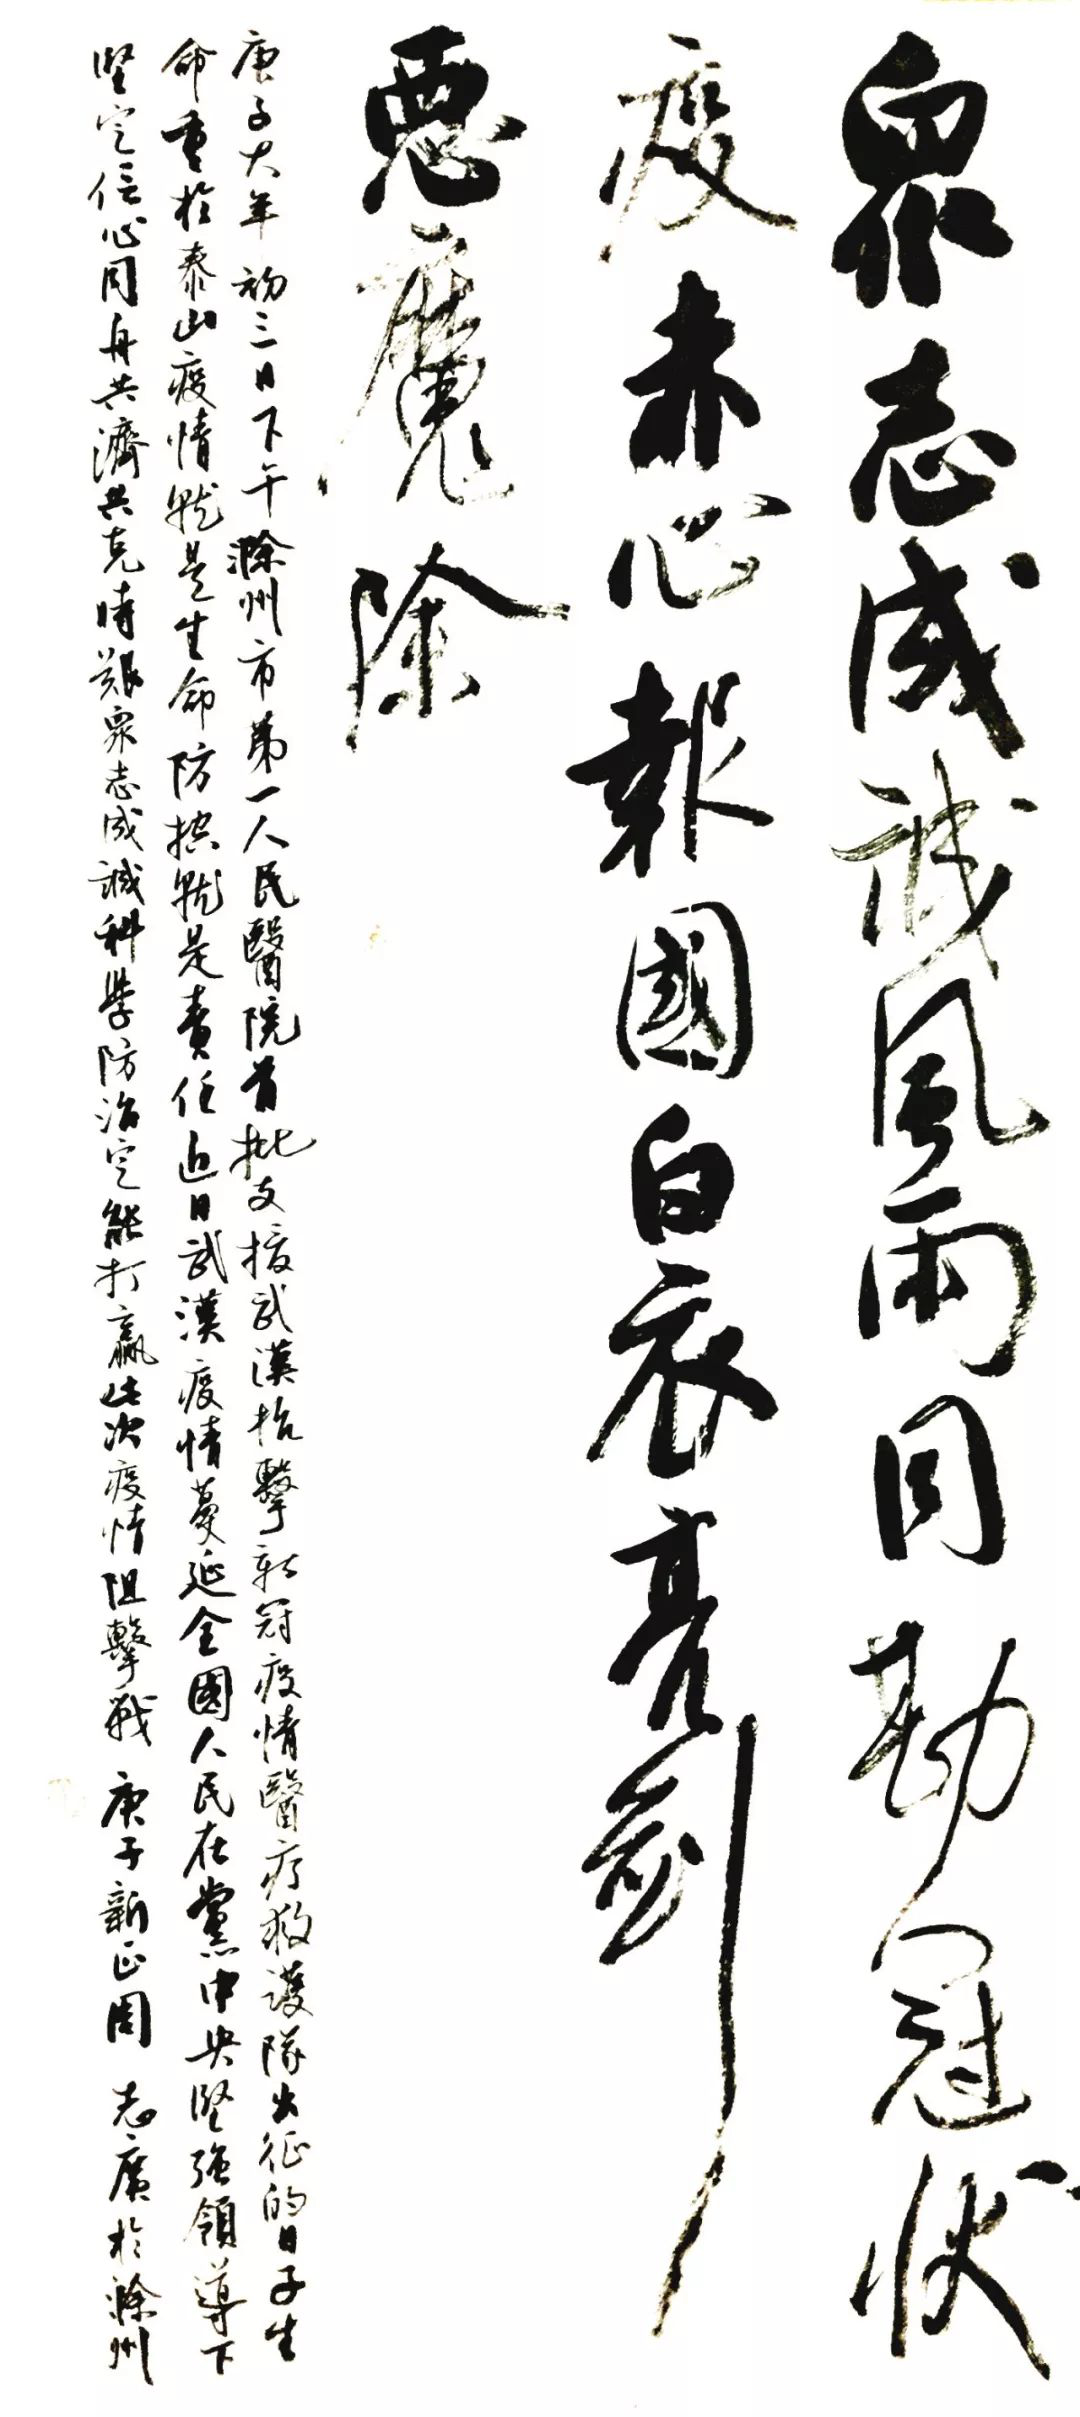 眾志成诚風雨同勘冠狀
疫赤心報國白衣亮劍
惡魔除
庚子大年初三日下午滁州市第一人民醫院首批支援武漢抗擊新冠疫情醫疗救護隊出征的日子生
命重於泰山疫情就是生命防控就是责任近日武漢疫情蔓延全國人民在黨中央堅強領導下
堅定信心同舟共濟共克時艱眾志成誠科學防治定能打贏此次疫情阻擊戰 庚子新正周志廣於滁州